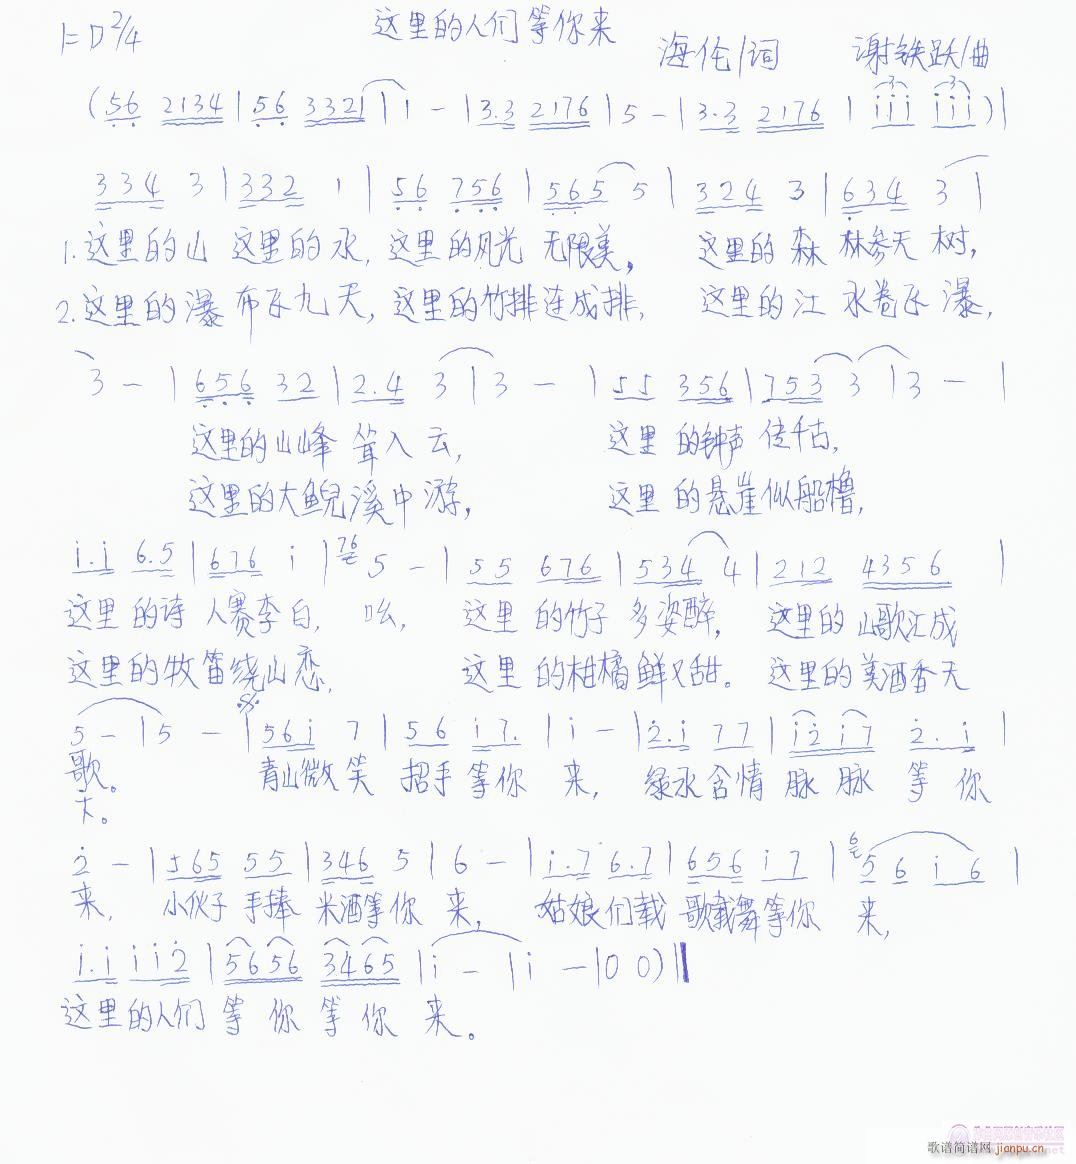 这里的人们等你来
1=D 2/4
海伦/词 谢铁跃/曲
(56 2134|56 3321|1 -|3.3 2176|5 -|3.3 2176|i.ii iii)|
334 3|332 1|56 756|565 5|324 3|634 3|
1.这里的山 这里的水,这里的风光 无限美, 这里的 森 林参天 树,
2.这里的瀑 布飞九天,这里的竹排连成排, 这里的江 水卷飞 瀑,
3 -|656 32|2.4 3|3 -|55 356|753 3|3 -|
这里的山峰 耸入云, 这里 的钟声 传千古,
这里的大鲵溪中游, 这里 的悬崖似船橹,
i.i 6.5|676 i|76 5 -|55 676|534 4|212 4356|
这里 的诗 人赛李白, 吆, 这里 的竹子 多姿醉, 这里的 山歌汇成
这里的牧笛绕山恋, 这里 的柑橘鲜又甜。 这里的 美酒香天
5 -|5 -|56i 7|56 i7.|i -|2.i 77|i2i7 2.i|
歌。 青山微笑 招手等你 来, 绿水含情 脉脉 等你
下。
2 -|565 55|346 5|6 -|i.7 6.7|656 i7|6 56i6|
来, 小伙子 手捧 米酒等你 来, 姑娘们载 歌载舞等你 来,
i.i ii2|5656 3465|i -|i -|0 0)‖
这里的人们 等你等你 来。
歌谱简谱网 jianpu.cn